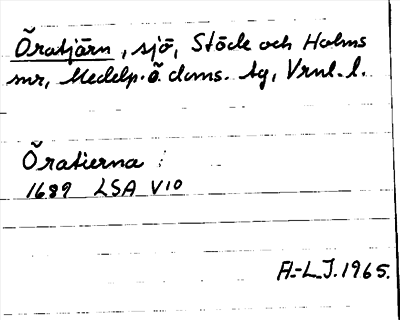 Öratjärn, sjö, Stöde och Holms
snr, Medelp. ö. doms. tg, Vrnl. l.
Öratierna :
1689 LSA V10
A.-L.J. 1965.